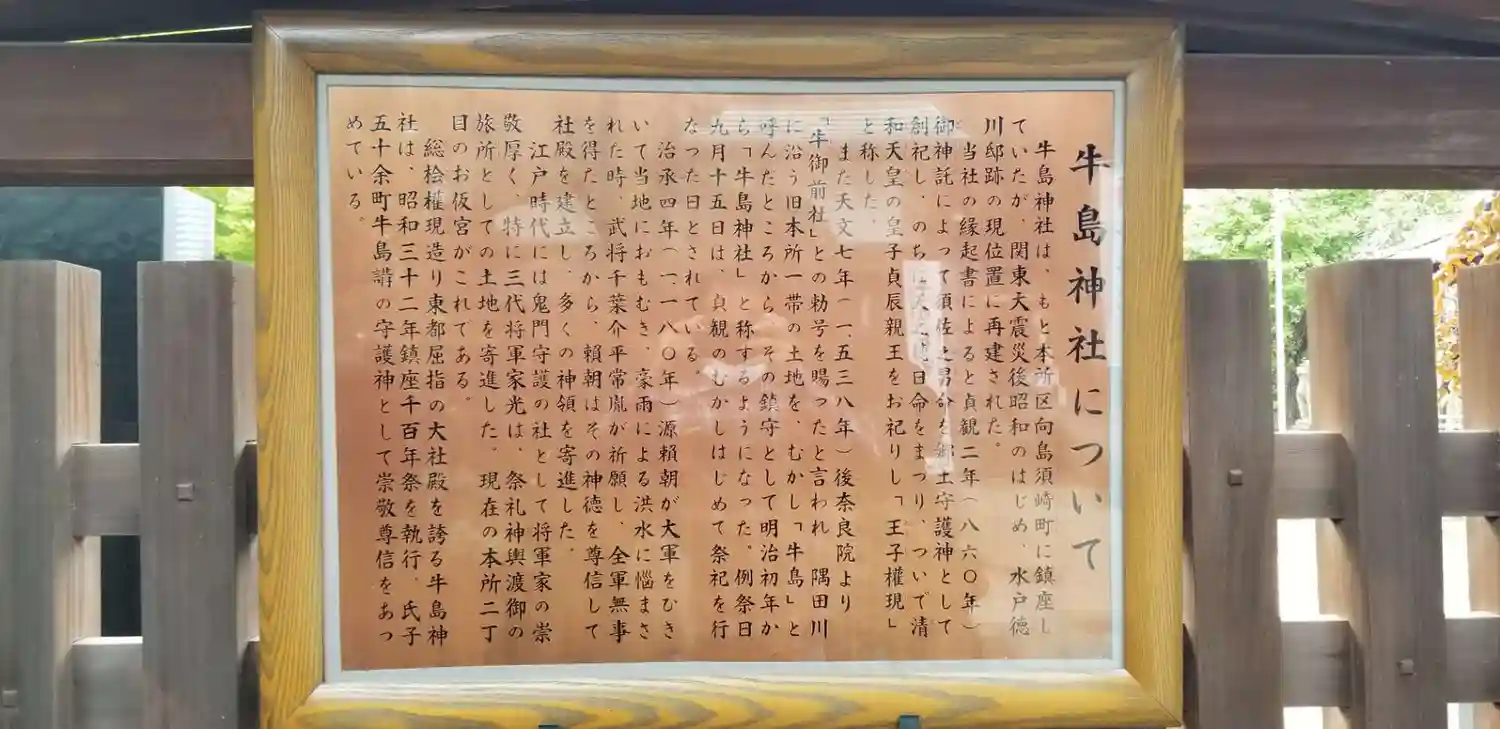 牛島神社について
牛島神社は、もと本所区向島須崎町に鎮座し
ていたが、関東大震災後昭和のはじめ、水戸徳
川邸跡の現位置に再建された。
当社の縁起書によると貞観二年(八六〇年)
御神託によって須佐之男命を郷土守護神として
創祀し、のちに天之 日命をまつり、ついで清
和天皇の皇子貞辰親王をお祀りし「王子權現」
と称した、
また天文七年(一、五三八年)後奈良院より
「牛御前社」との勅号を賜ったと言われ 隅田川
に沿う旧本所一帯の土地を、むかし「牛島」と
呼んだところから その鎮守として明治初年か
ら「牛島神社」と称するようになった。例祭日
九月十五日は、貞観のむかしはじめて祭祀を行
なった日とされている。
治承四年(一、一八〇年)源頼朝が大軍をひき
いて当地におもむき、豪雨による洪水に悩まさ
れた時、武将千葉介平常胤が祈願し、全軍無事
を得たところから、頼朝はその神徳を尊信して
社殿を建立し、多くの神領を寄進した。
江戸時代には鬼門守護の社として将軍家の崇
敬厚く、特に三代将軍家光は、祭礼神輿渡御の
旅所としての土地を寄進した。現在の本所二丁
目のお仮宮がこれである。
総桧權現造り東都屈指の大社殿を誇る牛島神
社は、昭和三十二年鎮座千百年祭を執行、氏子
五十余町牛島講の守護神として崇敬尊信をあつ
めている。